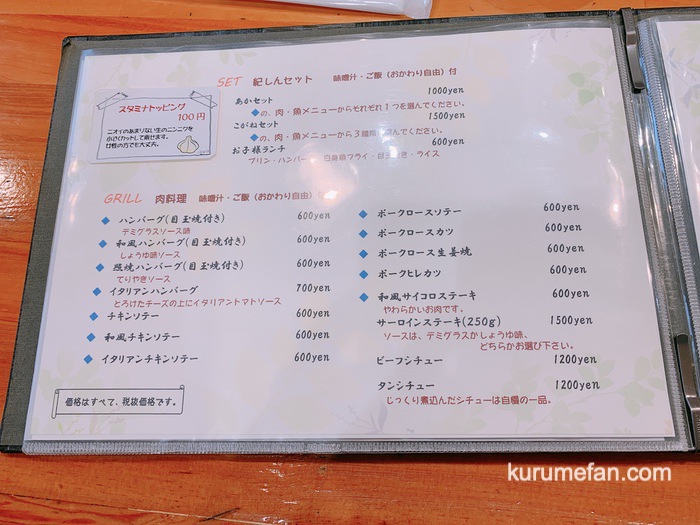 SET 紀しんセット 味噌汁・ご飯(おかわり自由)付
スタミナトッピング
100円
ニオイのあまりない生のニンニクを
小さくカットして乗せます。
女性の方でも大丈夫。
あかセット 1000yen
◆の、肉・魚メニューからそれぞれ1つを選んでください。
こがねセット 1500yen
◆の、肉・魚メニューから3種類 選んでください。
お子様ランチ 600yen
プリン・ハンバーグ・白身魚フライ・目玉焼き・ライス
GRILL 肉料理 味噌汁・ご飯(おかわり自由)
◆ ハンバーグ(目玉焼付き) 600yen
デミグラスソース味
◆ 和風ハンバーグ(目玉焼付き) 600yen
しょうゆ味ソース
◆ 照焼ハンバーグ(目玉焼付き) 600yen
てりやきソース
◆ イタリアンハンバーグ 700yen
とろけたチーズの上にイタリアントマトソース
◆ チキンソテー 600yen
◆ 和風チキンソテー 600yen
◆ イタリアンチキンソテー 600yen
価格はすべて、税抜価格です。
◆ ポークロースソテー 600yen
◆ ポークロースカツ 600yen
◆ ポークロース生姜焼 600yen
◆ ポークヒレカツ 600yen
◆ 和風サイコロステーキ 600yen
やわらかいお肉です。
サーロインステーキ(250g) 1500yen
ソースは、デミグラスかしょうゆ味、
どちらかお選び下さい。
ビーフシチュー 1200yen
タンシチュー 1200yen
じっくり煮込んだシチューは自慢の一品。
kurumefan.com